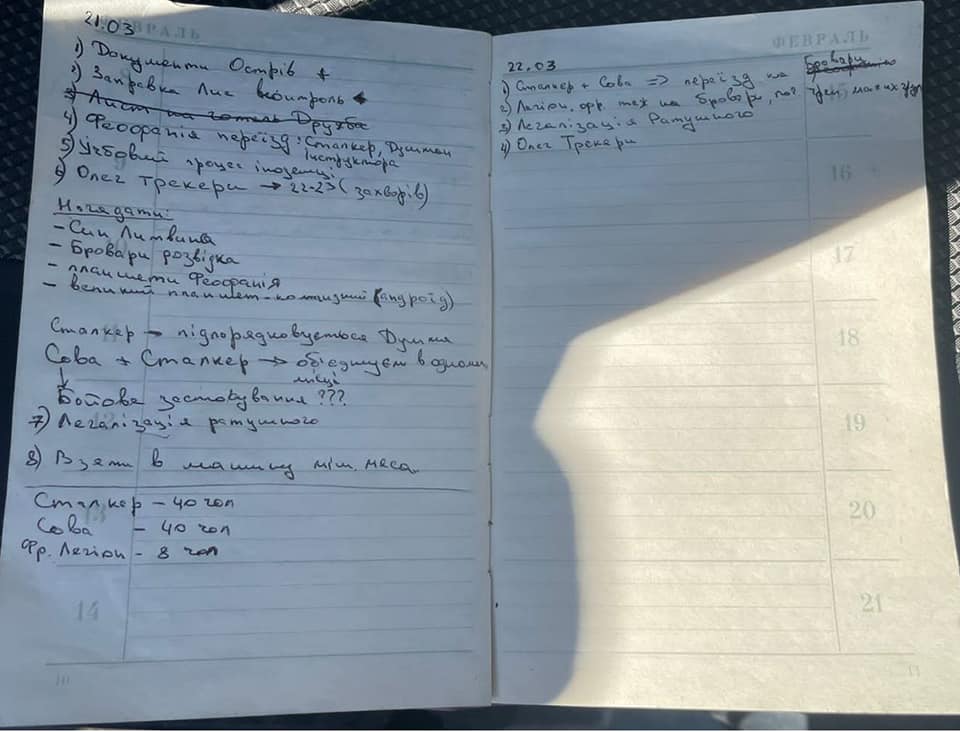 21.03
ФЕВРАЛЬ
1) Документи Острів +
2) Заправка Лис контроль
3) Лист на готель Дружба
4) Феофанія переїзд: Сталкер, Думман
інструктора
5) Учбовий процес іноземці
6) Олег Трекери → 22-23 (захворів)
Нагадати:
- Син Литвина
- Бровари розвідка
- планшети Феофанія
- великий планшет (андроїд)
Сталкер → підпорядковується
Сова + Сталкер → обєднуєм в одному
місці
↓
Бойове застосування ???
7) Легалізація ратушного
8) Взяти в машину міш. мєса
Сталкер – 40 чол
Сова – 40 чол
Фр. Легіон – 8 чол
13
14
10
ФЕВРАЛЬ
22.03
1) Сталкер + Сова => переїзд на Бровари
2) Легіон. фр. теж на Бровари,
3) Легалізація Ратушного
4) Олег Трекери
15
16
17
18
19
20
21
11